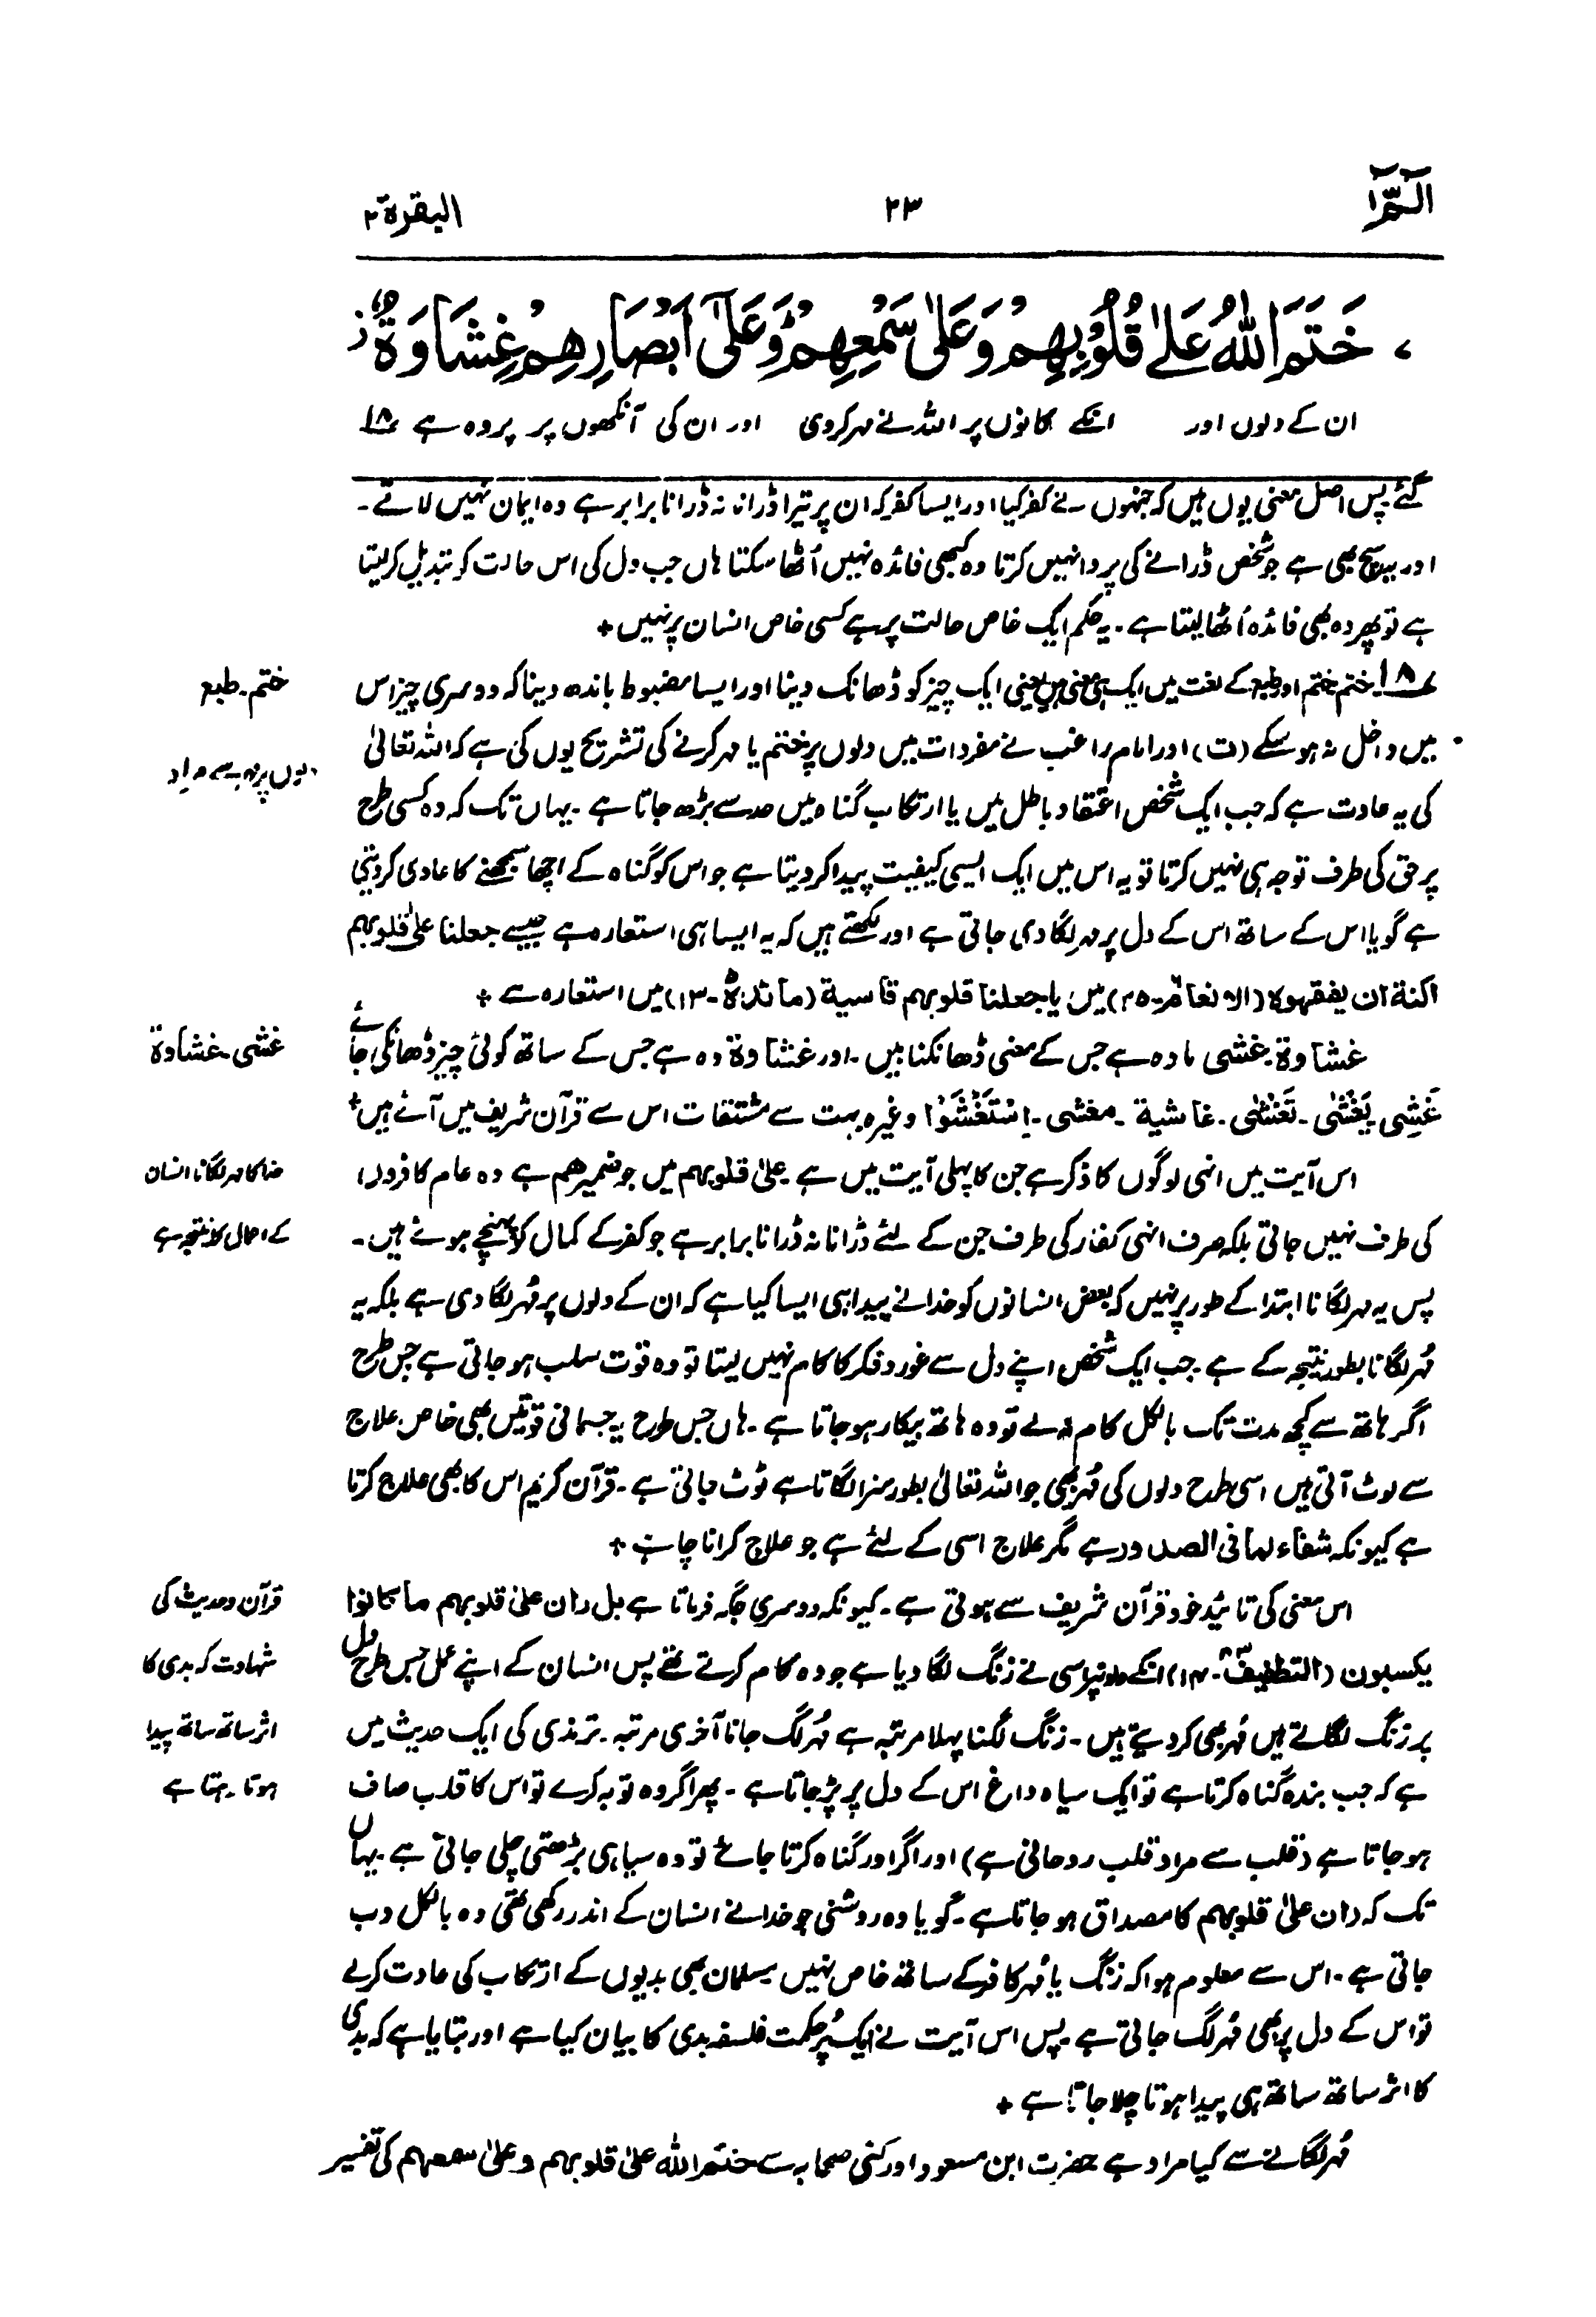 الٓمّٓ ١
٢٣
البقرة ٢
٧ خَتَمَ اللّٰهُ عَلٰى قُلُوْبِهِمْ وَعَلٰى سَمْعِهِمْ ۭ وَعَلٰٓى اَبْصَارِهِمْ غِشَاوَةٌ ۡ
ان کے دلوں اور انکے کانوں پر اللہ نے مہر کردی اور ان کی آنکھوں پر پردہ ہے ١٨
گئے پس اصل معنی یوں ہیں کہ جنہوں نے کفر کیا اور ایسا کفر کہ ان پر تیرا ڈرانا نہ ڈرانا برابر ہے وہ ایمان نہیں لاتے۔
اور یہ سچ بھی ہے جو شخص ڈرانے کی پروا نہیں کرتا وہ کبھی فائدہ نہیں اُٹھا سکتا ہاں جب دل کی اس حالت کو تبدیل کر لیتا
ہے تو پھر وہ بھی فائدہ اُٹھا لیتا ہے۔ یہ حکم ایک خاص حالت پر ہے کسی خاص انسان پر نہیں +
١٨۔ ختم ختم اور طبع کے لغت میں ایک ہی معنی ہیں یعنی ایک چیز کو ڈھانک دینا اور ایسا مضبوط باندھ دینا کہ دوسری چیز اس
ختم۔ طبع
میں داخل نہ ہو سکے (ت) اور امام راغب نے مفردات میں دلوں پر ختم یا مہر کرنے کی تشریح یوں کی ہے کہ اللہ تعالیٰ
دلوں پر مہر سے مراد
کی یہ عادت ہے کہ جب ایک شخص اعتقاد باطل میں یا ارتکاب گناہ میں حد سے بڑھ جاتا ہے۔ یہاں تک کہ وہ کسی طرح
پر حق کی طرف توجہ ہی نہیں کرتا تو یہ اس میں ایک ایسی کیفیت پیدا کر دیتا ہے جو اس کو گناہ کے اچھا سمجھنے کا عادی کر دیتی
ہے گویا اس کے ساتھ اس کے دل پر مہر لگا دی جاتی ہے اور لکھتے ہیں کہ یہ ایسا ہی استعارہ ہے جیسے جعلنا علیٰ قلوبہم
اکنة ان یفقہوہ (الانعام ۔ ٢٥) میں یا جعلنا قلوبہم قاسیة (مائدة ۔ ١٣) میں استعارہ ہے +
غشاوة۔ غشی مادہ ہے جس کے معنی ڈھانکنا ہیں۔ اور غشاوة وہ ہے جس کے ساتھ کوئی چیز ڈھانکی جائے
غشی۔ غشاوة
غَشِی یَغْشٰی ۔ تَغْشٰی ۔ غاشیة ۔ مغشی ۔ اِسْتَغْشَوْا وغیرہ بہت سے مشتقات اس سے قرآن شریف میں آئے ہیں +
اس آیت میں انہی لوگوں کا ذکر ہے جن کا پہلی آیت میں ہے علیٰ قلوبہم میں جو ضمیر ھم ہے وہ عام کافروں
خدا کا مہر لگانا انسان
کی طرف نہیں جاتی بلکہ صرف انہی کفار کی طرف جن کے لئے ڈرانا نہ ڈرانا برابر ہے جو کفر کے کمال کو پہنچے ہوئے ہیں۔
کے اعمال کا نتیجہ ہے
پس یہ مہر لگانا ابتدا کے طور پر نہیں کہ بعض انسانوں کو خدا نے پیدا ہی ایسا کیا ہے کہ ان کے دلوں پر مُہر لگا دی ہے بلکہ یہ
مُہر لگانا بطور نتیجہ کے ہے۔ جب ایک شخص اپنے دل سے غور و فکر کا کام نہیں لیتا تو وہ قوت سلب ہو جاتی ہے جس طرح
اگر ہاتھ سے کچھ مدت تک بالکل کام نہ لے تو وہ ہاتھ بیکار ہو جاتا ہے۔ ہاں جس طرح یہ جسمانی قوتیں بھی خاص علاج
سے لوٹ آتی ہیں اسی طرح دلوں کی مُہر بھی جو اللہ تعالیٰ بطور سزا لگاتا ہے ٹوٹ جاتی ہے۔ قرآن کریم اس کا بھی علاج کرتا
ہے کیونکہ شفاء لما فی الصدور ہے مگر علاج اسی کے لئے ہے جو علاج کرانا چاہے +
اس معنی کی تائید خود قرآن شریف سے ہوتی ہے۔ کیونکہ دوسری جگہ فرماتا ہے بل ران علیٰ قلوبہم ما کانوا
قرآن و حدیث کی
یکسبون (التطفیف ۔ ١٤) انکے دلوں پر اسی نے زنگ لگا دیا ہے جو وہ کام کرتے تھے پس انسان کے اپنے عمل جس طرح دل
شہادت کہ بدی کا
پر زنگ لگاتے ہیں مُہر بھی کر دیتے ہیں۔ زنگ لگنا پہلا مرتبہ ہے مُہر لگ جانا آخری مرتبہ۔ ترمذی کی ایک حدیث میں
اثر ساتھ ساتھ پیدا
ہے کہ جب بندہ گناہ کرتا ہے تو ایک سیاہ داغ اس کے دل پر پڑ جاتا ہے۔ پھر اگر وہ توبہ کرے تو اس کا قلب صاف
ہوتا رہتا ہے
ہو جاتا ہے (قلب سے مراد قلب روحانی ہے) اور اگر اور گناہ کرتا جائے تو وہ سیاہی بڑھتی چلی جاتی ہے یہاں
تک کہ ران علیٰ قلوبہم کا مصداق ہو جاتا ہے۔ گویا وہ روشنی جو خدا نے انسان کے اندر رکھی تھی وہ بالکل دب
جاتی ہے۔ اس سے معلوم ہوا کہ زنگ یا مُہر کافر کے ساتھ خاص نہیں مسلمان بھی بدیوں کے ارتکاب کی عادت کرلے
تو اس کے دل پر بھی مُہر لگ جاتی ہے۔ پس اس آیت نے ایک پُر حکمت فلسفہ بدی کا بیان کیا ہے اور بتایا ہے کہ بدی
کا اثر ساتھ ساتھ ہی پیدا ہوتا چلا جاتا ہے +
مُہر لگانے سے کیا مراد ہے حضرت ابن مسعود اور کئی صحابہ سے ختم اللہ علیٰ قلوبہم وعلیٰ سمعہم کی تفسیر